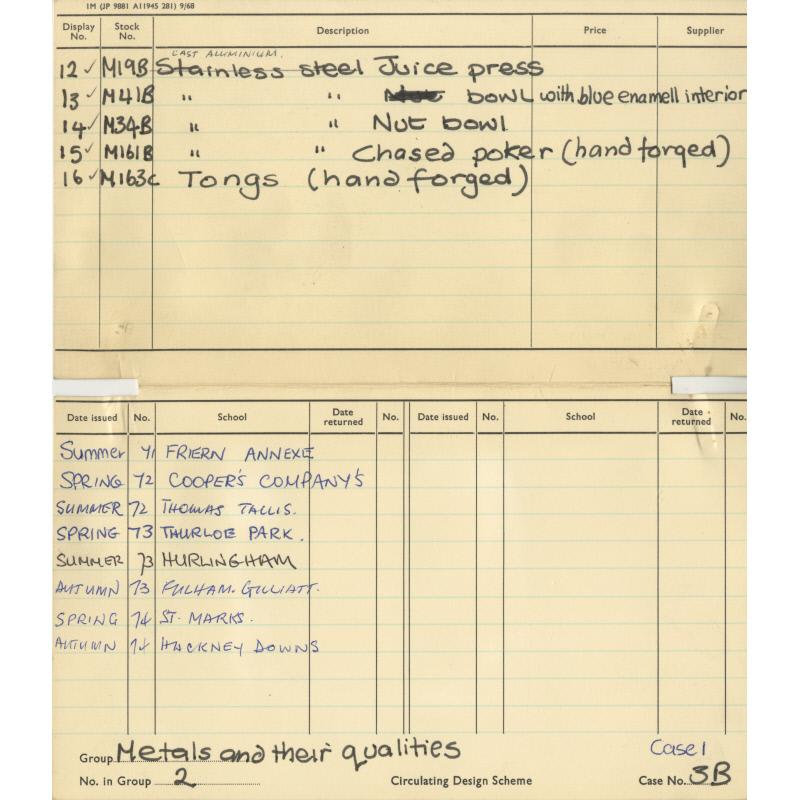 1M (JP 9881 A11945 281) 9/68
Display No. Stock No. Description Price Supplier
CAST ALUMINIUM.
12 ✓ M19B Stainless steel Juice press
13 ✓ M41B " " Nut bowl with blue enamell interior
14 ✓ M34B " " Nut bowl
15 ✓ M161B " " Chased poker (hand forged)
16 ✓ M163c Tongs (hand forged)
Date issued No. School Date returned No. Date issued No. School Date returned No.
Summer 71 FRIERN ANNEXE
SPRING 72 COOPER'S COMPANY'S
SUMMER 72 THOMAS TALLIS.
SPRING 73 THURLOE PARK.
SUMMER 73 HURLINGHAM
AUTUMN 73 FULHAM-GILLIATT.
SPRING 74 ST. MARKS.
AUTUMN 74 HACKNEY DOWNS
Group Metals and their qualities Case 1
No. in Group 2 Circulating Design Scheme Case No. 3B